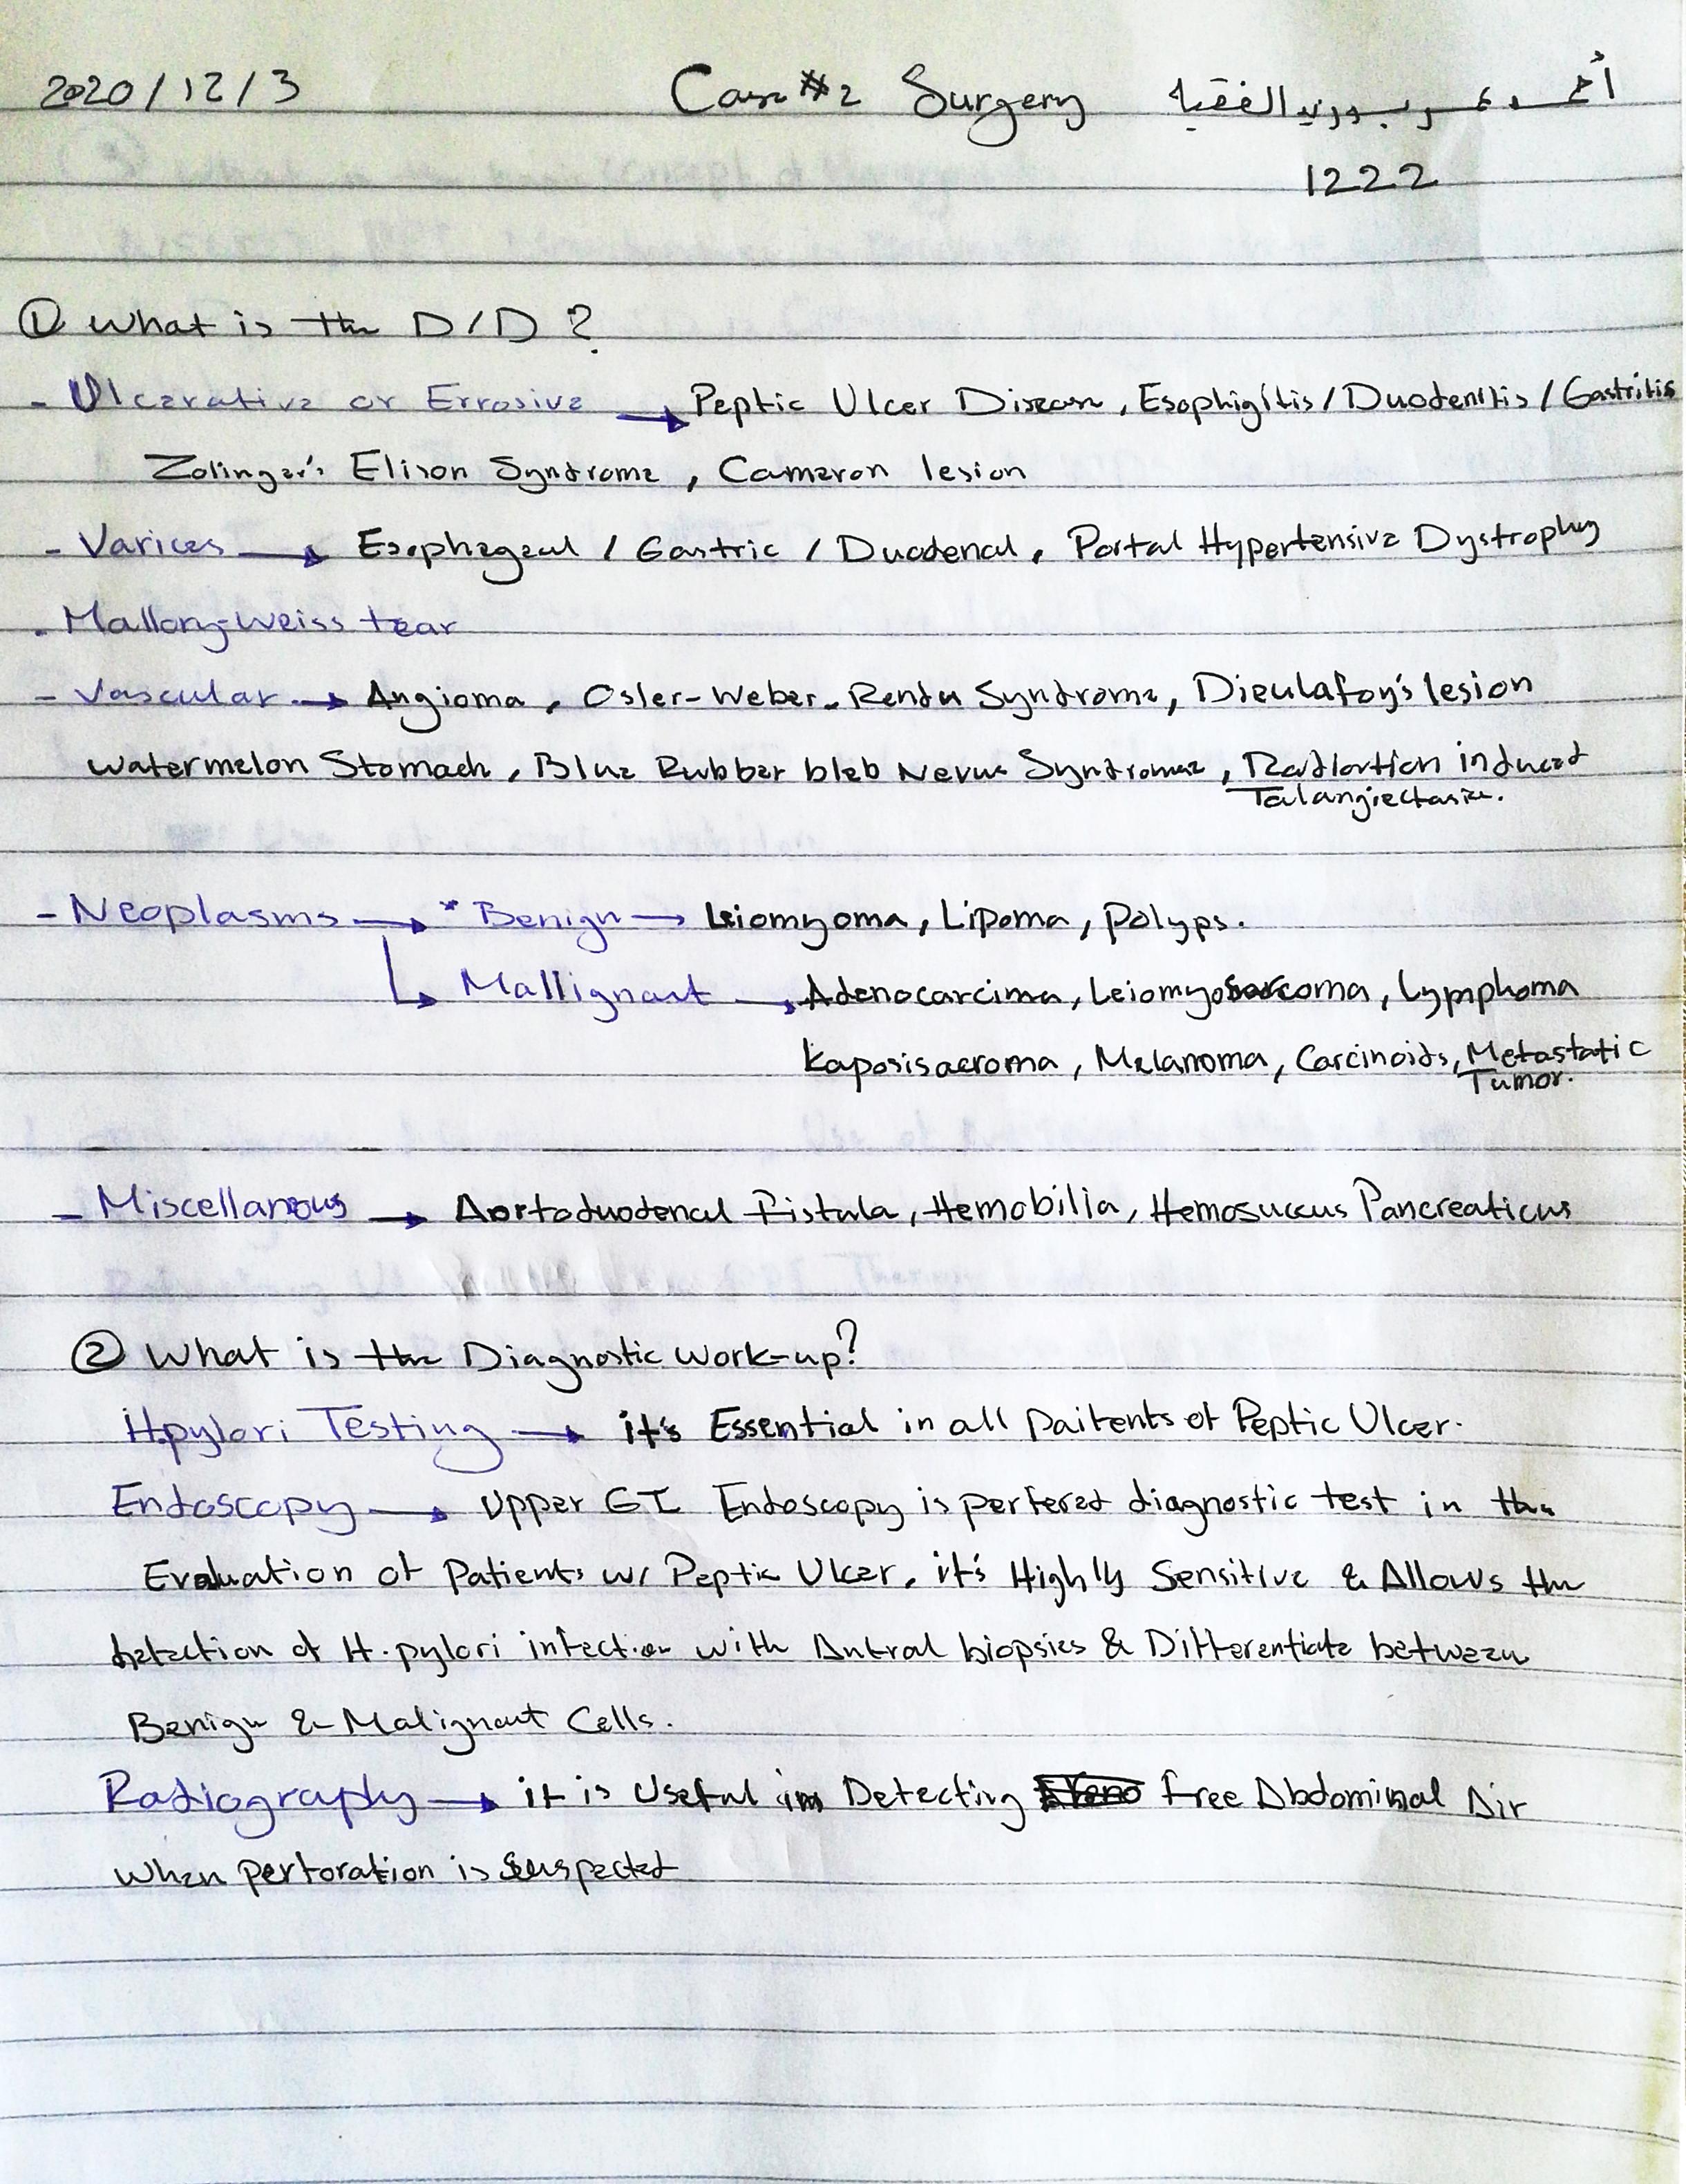 2020/12/3 Case #2 Surgery الفقيه
1222
① What is the D/D ?
- Ulcerative or Errosive → Peptic Ulcer Disease, Esophigitis / Duodenitis / Gastritis
Zolinger's Elison Syndrome, Cameron lesion
- Varices → Esophageal / Gastric / Duodenal, Portal Hypertensive Dystrophy
- Mallory-weiss tear
- Vascular → Angioma, Osler-Weber-Rendu Syndrome, Dieulafoy's lesion
Watermelon Stomach, Blue Rubber bleb Nevus Syndrome, Radiation induced
Talangiectasia.
- Neoplasms → * Benign → Leiomyoma, Lipoma, Polyps.
↳ Mallignant → Adenocarcima, Leiomyosarcoma, Lymphoma
Kaposisacroma, Melanoma, Carcinoids, Metastatic
Tumor.
- Miscellanous → Aortoduodenal Fistula, Hemobilia, Hemosuccus Pancreaticus
② What is the Diagnostic work-up?
H.pylori Testing → it's Essential in all Paitents of Peptic Ulcer.
Endoscopy → Upper GI Endoscopy is perfered diagnostic test in the
Evaluation of Patients w/ Peptic Ulcer, it's Highly Sensitive & Allows the
detection of H.pylori infection with Antral biopsies & Differentiate between
Benign & Malignant Cells.
Radiography → it is Useful in Detecting Free Abdominal Air
when perforation is Suspected